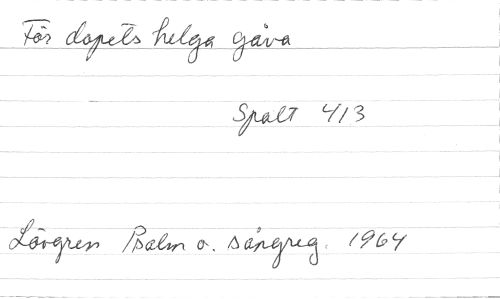 För dopets helga gåva
Spalt 413
Lövgren Psalm o. sångreg. 1964